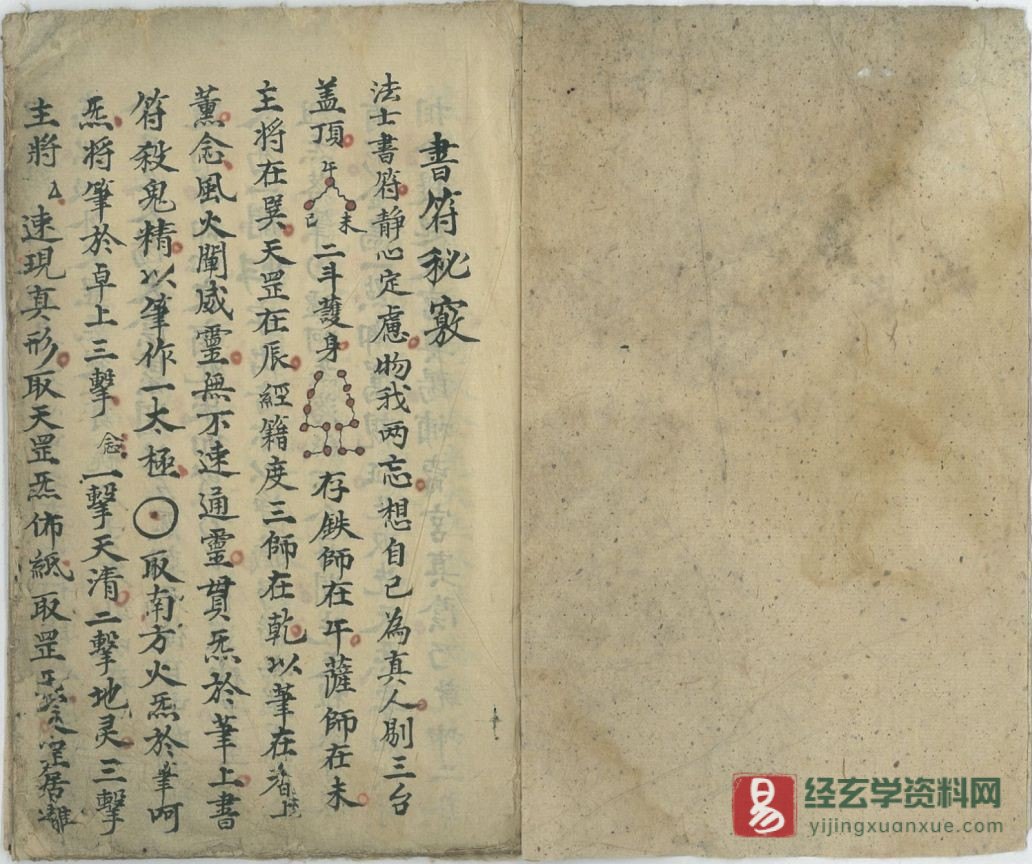 書符秘竅
法士書符静心定慮物我两忘想自己為真人剔三台
盖頂 午 未 己 二斗䕶身 存鉄師在午薩師在未
主將在巽天罡在辰經籍度三師在乾以筆在香上
薰念風火闡威靈無不速通靈貫炁於筆上書
符殺鬼精以筆作一太極取南方火炁於筆呵
炁將筆於卓上三擊念一擊天清二擊地灵三擊
主將速現真形取天罡炁佈紙取罡炁居離
易
经玄学资料网
yijingxuanxue.com